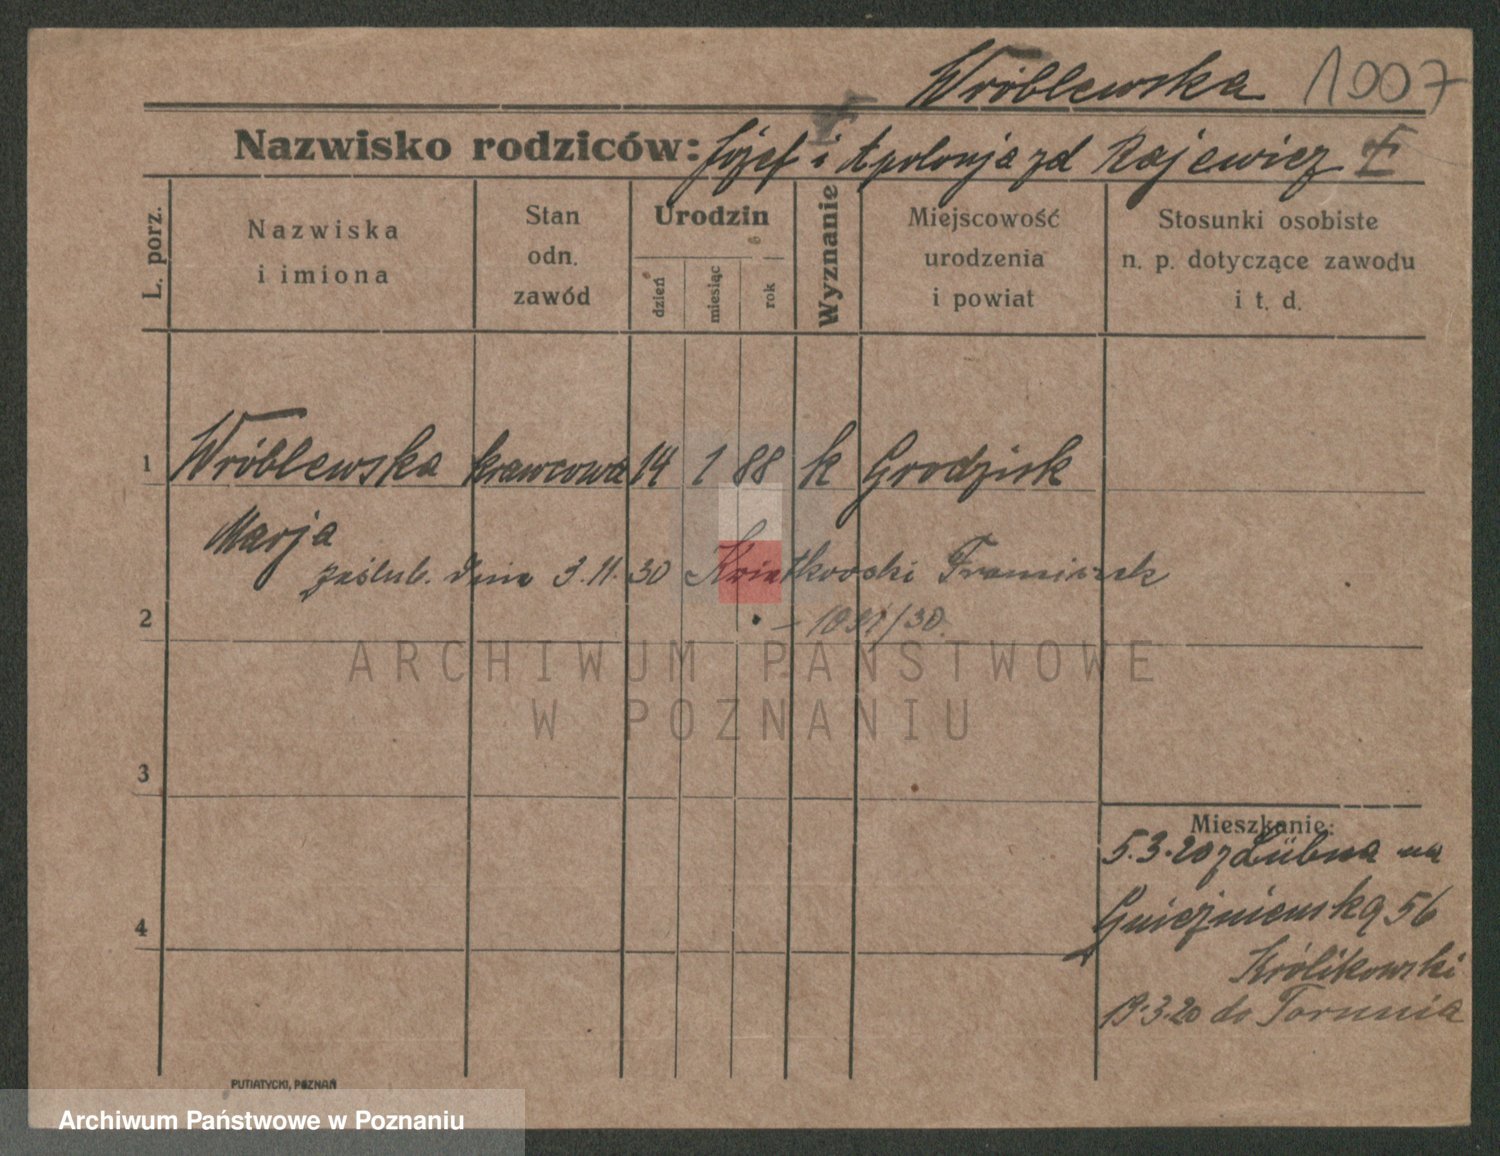 Wróblewska 1007
Nazwisko rodziców: Józef i Apolonja zd Rajewicz
L. porz.
Nazwiska
i imiona
Stan
odn.
zawód
Urodzin
dzień
miesiąc
rok
Wyznanie
Miejscowość
urodzenia
i powiat
Stosunki osobiste
n. p. dotyczące zawodu
i t. d.
1 Wróblewska krawcowa 14 1 88 k Grodzisk
Marja
zaślub. dnia 3.11.30 Kwiatkowski Franciszek
2
ARCHIWUM PAŃSTWOWE
W POZNANIU
3
Mieszkanie:
5.3.20 z Lübna na
4
Gnieźnieńską 56
Królikowski
19.3.20 do Torunia
PUTIATYCKI, POZNAŃ
Archiwum Państwowe w Poznaniu